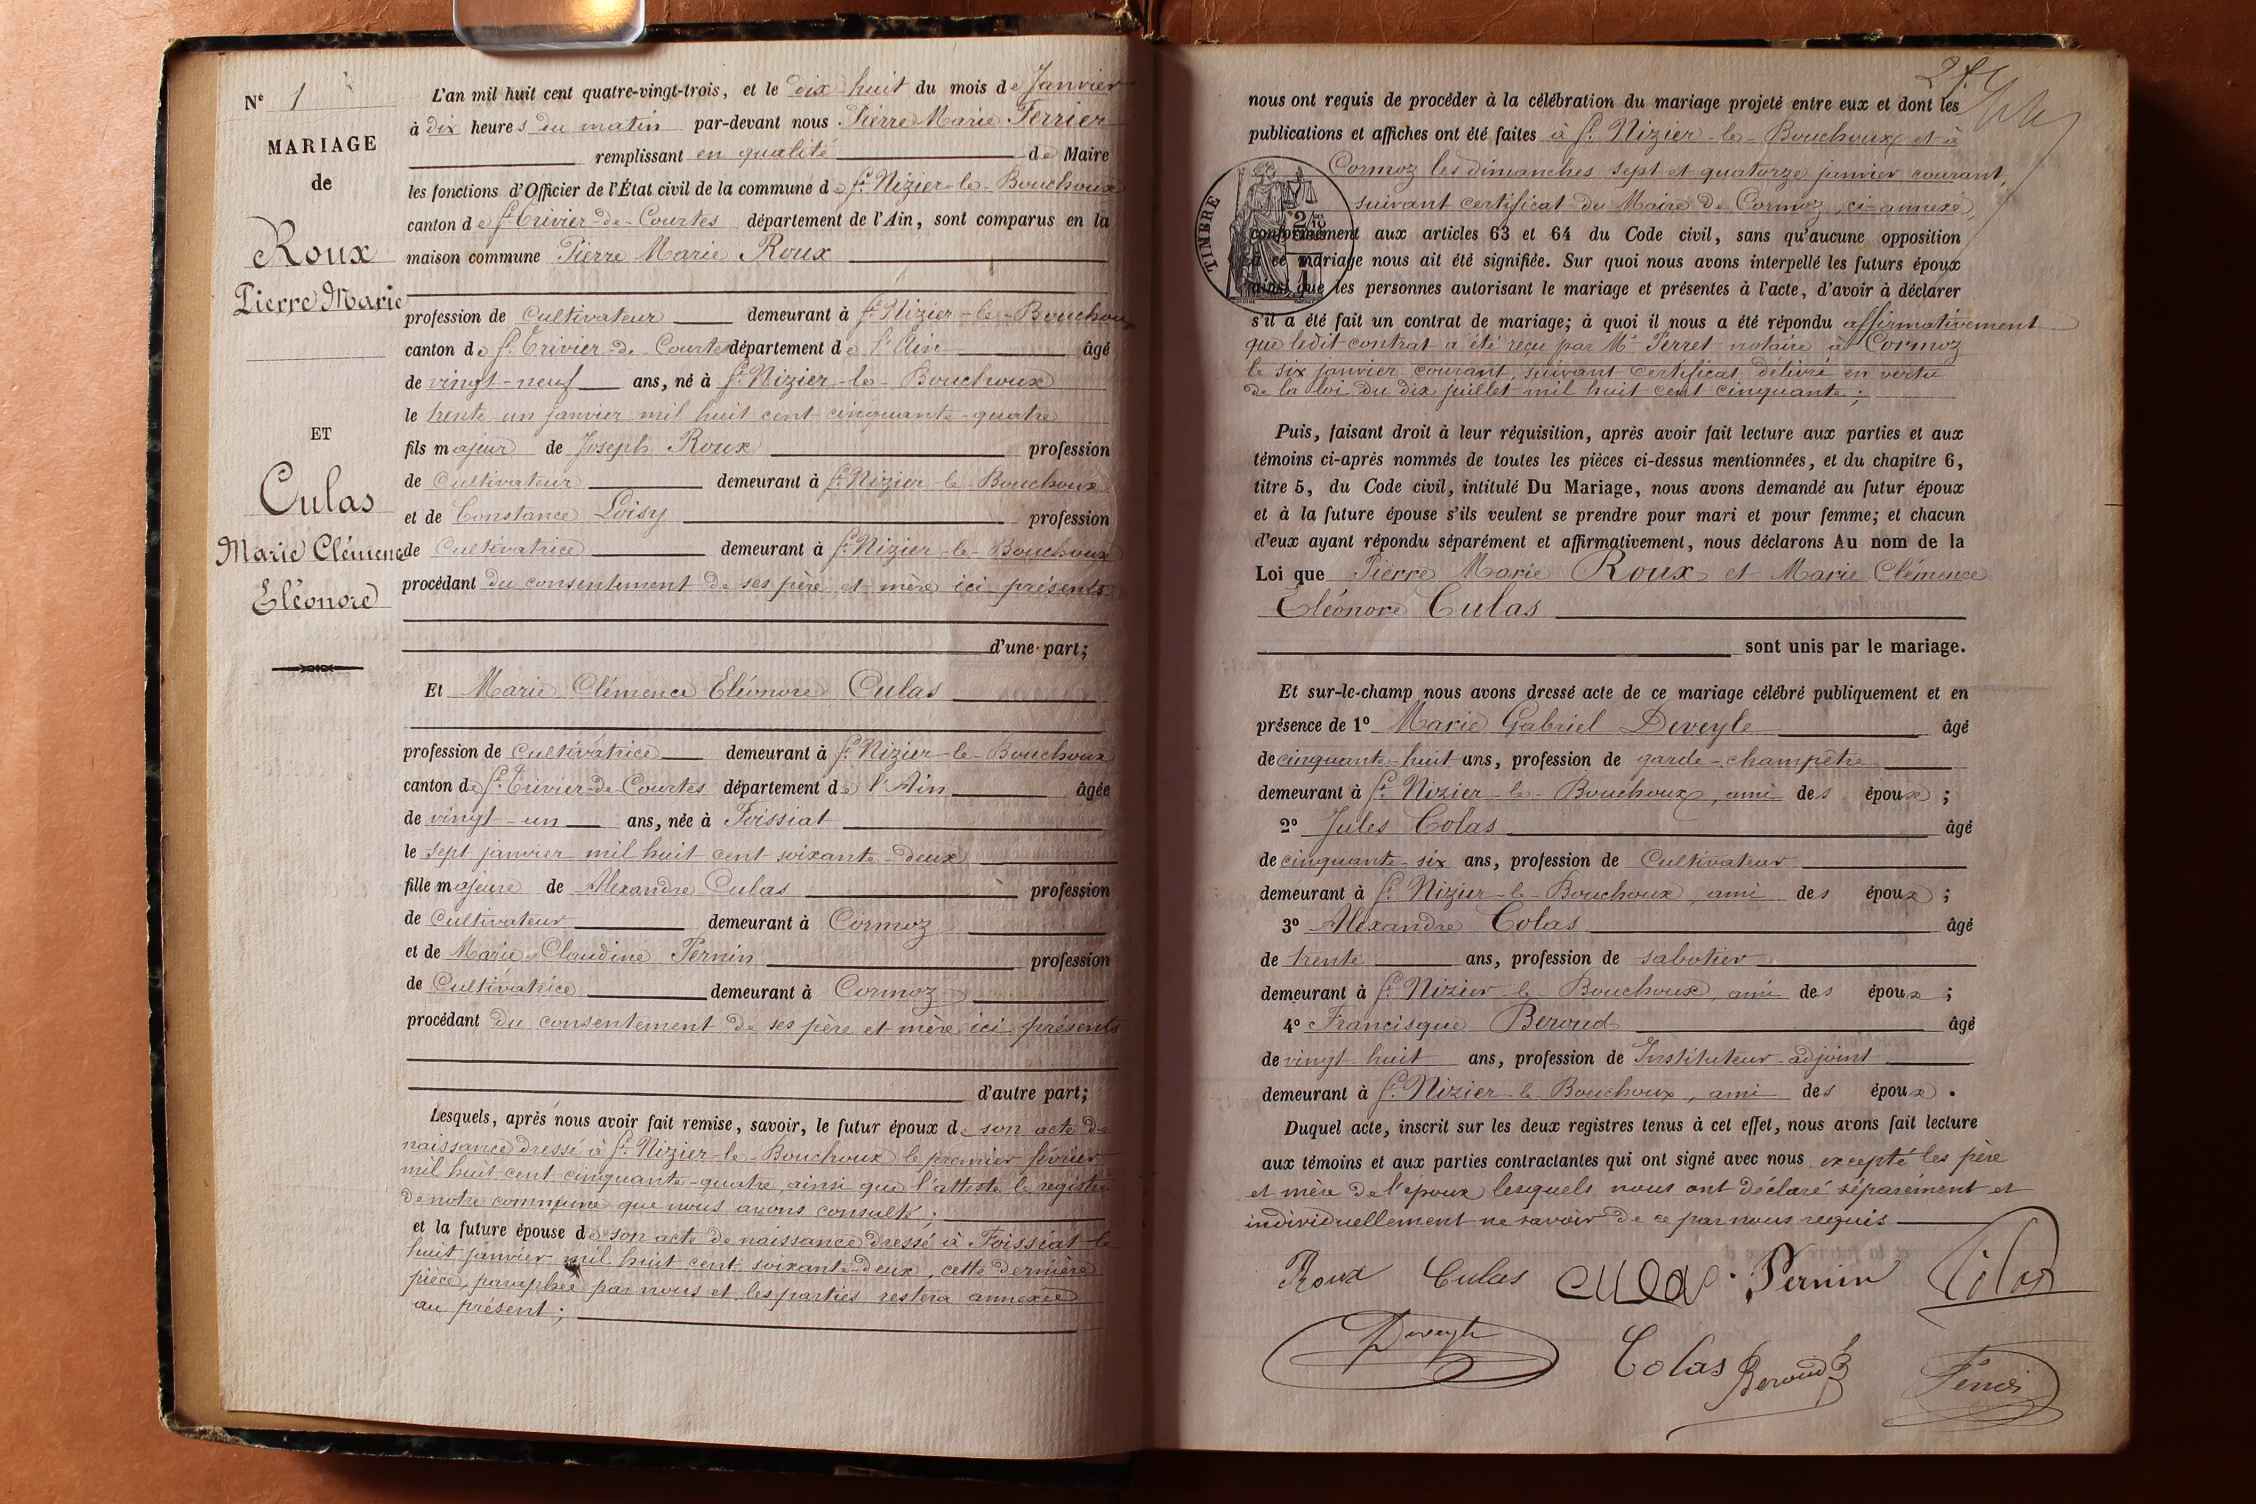 N° 1
MARIAGE
de
Roux
Pierre Marie
ET
Culas
Marie Clémence
Eléonore
L'an mil huit cent quatre-vingt-trois, et le dix huit du mois de Janvier
à dix heures du matin par-devant nous Pierre Marie Ferrier
remplissant en qualité de Maire
les fonctions d'Officier de l'État civil de la commune de St Nizier-le-Bouchoux
canton de St Trivier-de-Courtes département de l'Ain, sont comparus en la
maison commune Pierre Marie Roux
profession de Cultivateur demeurant à St Nizier-le-Bouchoux
canton de St Trivier-de-Courtes département de l'Ain âgé
de vingt-neuf ans, né à St Nizier-le-Bouchoux
le trente un janvier mil huit cent cinquante-quatre
fils majeur de Joseph Roux profession
de Cultivateur demeurant à St Nizier-le-Bouchoux
et de Constance Loisy profession
de Cultivatrice demeurant à St Nizier-le-Bouchoux
procédant du consentement de ses père et mère ici présents
d'une part;
Et Marie Clémence Eléonore Culas
profession de cultivatrice demeurant à St Nizier-le-Bouchoux
canton de St Trivier-de-Courtes département de l'Ain âgée
de vingt-un ans, née à Foissiat
le sept janvier mil huit cent soixante-deux
fille majeure de Alexandre Culas profession
de Cultivateur demeurant à Cormoz
et de Marie Claudine Pernin profession
de Cultivatrice demeurant à Cormoz
procédant du consentement de ses père et mère ici présents
d'autre part;
Lesquels, après nous avoir fait remise, savoir, le futur époux de son acte de
naissance dressé à St Nizier-le-Bouchoux le premier février
mil huit cent cinquante-quatre, ainsi que l'atteste le registre
de notre commune que nous avons consulté;
et la future épouse de son acte de naissance dressé à Foissiat le
huit janvier mil huit cent soixante-deux, cette dernière
pièce, paraphée par nous et les parties restera annexée
au présent;
nous ont requis de procéder à la célébration du mariage projeté entre eux et dont les
publications et affiches ont été faites à St Nizier-le-Bouchoux et à
Cormoz les dimanches sept et quatorze janvier courant,
suivant certificat du Maire de Cormoz, ci-annexé,
TIMBRE
conformément aux articles 63 et 64 du Code civil, sans qu'aucune opposition
à ce mariage nous ait été signifiée. Sur quoi nous avons interpellé les futurs époux
ainsi que les personnes autorisant le mariage et présentes à l'acte, d'avoir à déclarer
s'il a été fait un contrat de mariage; à quoi il nous a été répondu affirmativement
que ledit contrat a été reçu par Me Perret notaire à Cormoz
le six janvier courant, suivant certificat délivré en vertu
de la loi du dix juillet mil huit cent cinquante;
Puis, faisant droit à leur réquisition, après avoir fait lecture aux parties et aux
témoins ci-après nommés de toutes les pièces ci-dessus mentionnées, et du chapitre 6,
titre 5, du Code civil, intitulé Du Mariage, nous avons demandé au futur époux
et à la future épouse s'ils veulent se prendre pour mari et pour femme; et chacun
d'eux ayant répondu séparément et affirmativement, nous déclarons Au nom de la
Loi que Pierre Marie Roux et Marie Clémence
Eléonore Culas
sont unis par le mariage.
Et sur-le-champ nous avons dressé acte de ce mariage célébré publiquement et en
présence de 1° Marie Gabriel Deveyle âgé
de cinquante-huit ans, profession de garde-champêtre
demeurant à St Nizier-le-Bouchoux, ami des époux;
2° Jules Colas âgé
de cinquante-six ans, profession de Cultivateur
demeurant à St Nizier-le-Bouchoux, ami des époux;
3° Alexandre Colas âgé
de trente ans, profession de sabotier
demeurant à St Nizier-le-Bouchoux, ami des époux;
4° Francisque Beroud âgé
de vingt huit ans, profession de Instituteur-adjoint
demeurant à St Nizier-le-Bouchoux, ami des époux.
Duquel acte, inscrit sur les deux registres tenus à cet effet, nous avons fait lecture
aux témoins et aux parties contractantes qui ont signé avec nous excepté les père
et mère de l'époux lesquels nous ont déclaré séparément et
individuellement ne savoir de ce par nous requis
Roux Culas Culas Pernin Colas
Deveyle Colas Beroud